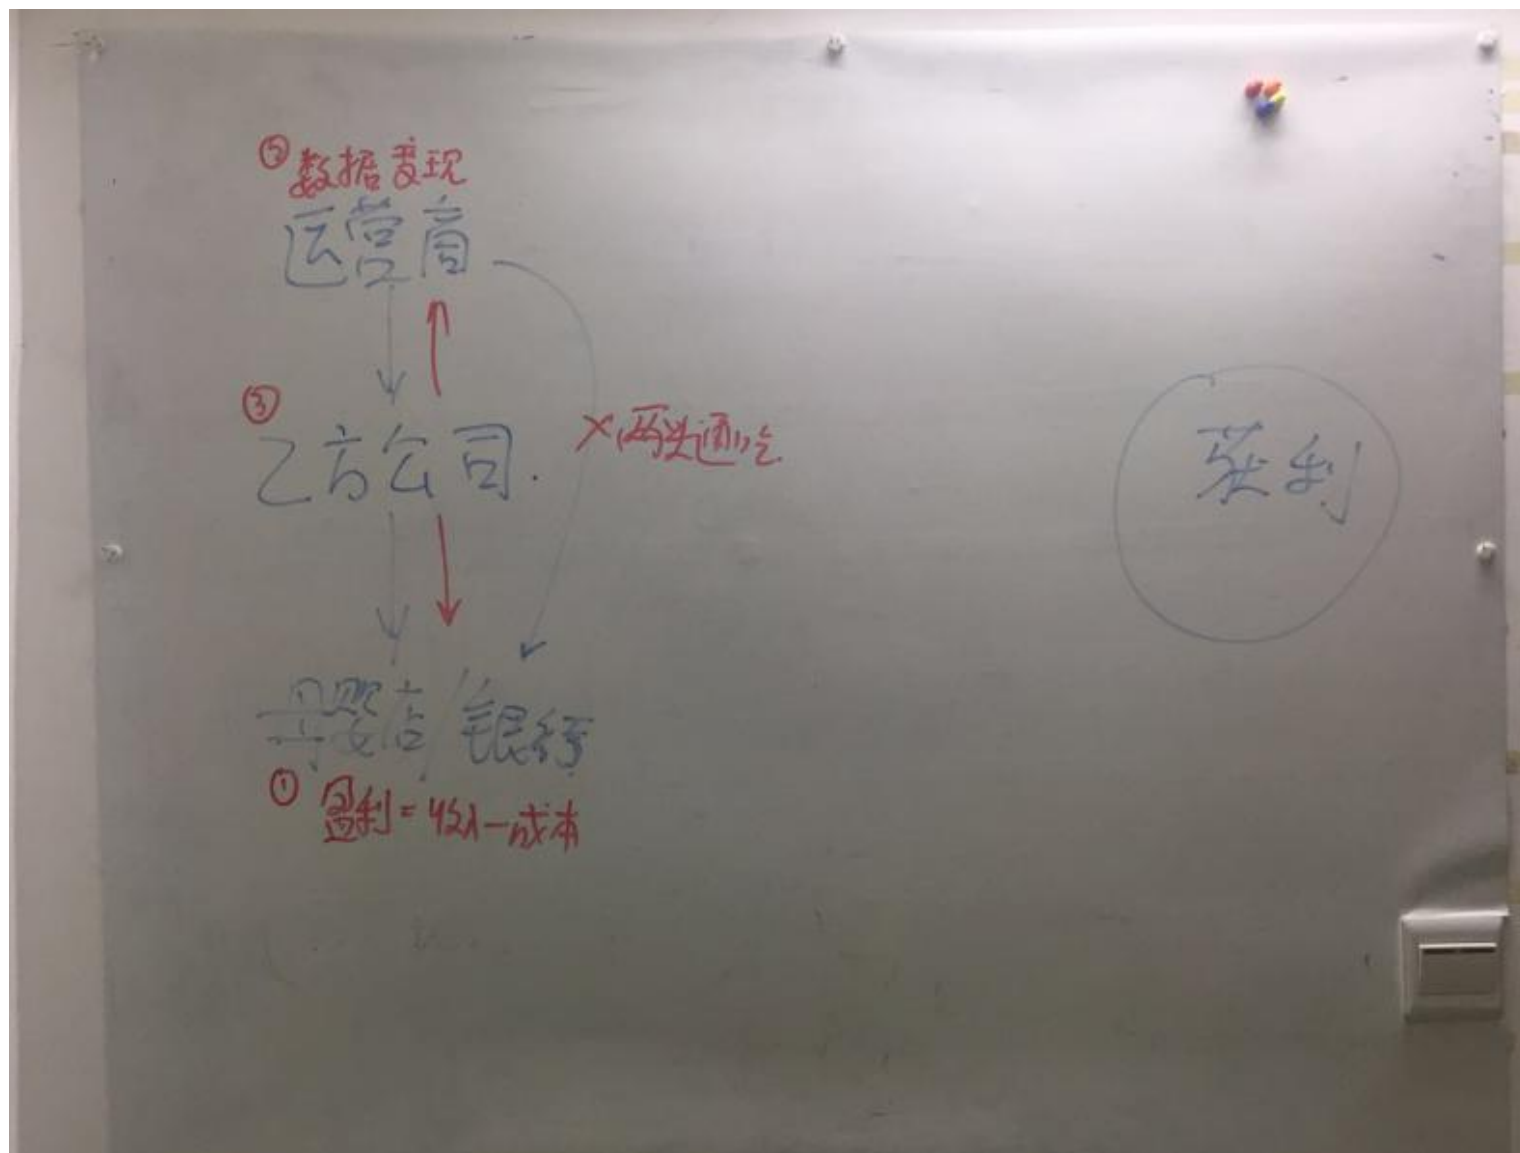 ② 数据变现
运营商
③
乙方公司.
×两头通吃
获利
母婴店/银行
① 盈利=收入-成本